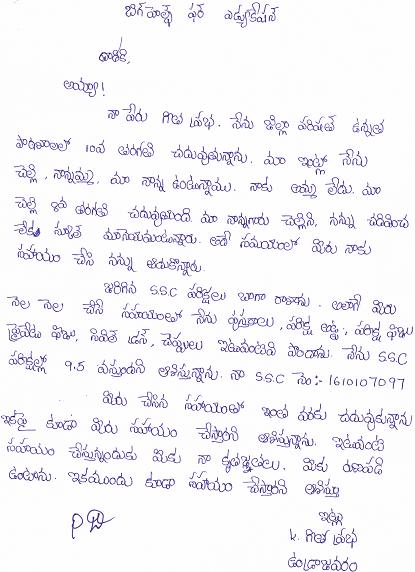 బిగ్ హెల్ప్ ఫర్ ఎడ్యుకేషన్
అయ్యా!
నా పేరు గీత ప్రభ. నేను జిల్లా పరిషత్ ఉన్నత
పాఠశాలలో 10వ తరగతి చదువుతున్నాను. మా ఇంట్లో నేను
చెల్లి, నాన్నమ్మ, మా నాన్న ఉంటున్నాము. నాకు అమ్మ లేదు. మా
చెల్లి 8వ తరగతి చదువుతుంది. మా నాన్నగారు చెల్లిని, నన్ను చదివించ
లేక స్కూల్ మానేయమంటున్నారు. అదే సమయంలో మీరు నాకు
సహాయం చేసి నన్ను ఆదుకొన్నారు.
జరిగిన S.S.C పరీక్షలు బాగా రాశాను. అలాగే మీరు
నెల నెల చేసే సహాయంలో నేను పుస్తకాలు, పరీక్ష అట్ట, పరీక్ష ఫీజు
ట్రైవేటు ఫీజు, సివిల్ డ్రస్, చెప్పులు ఇటువంటివి పొందాను. నేను S.S.C
పరీక్షల్లో 9.5 వస్తుందని ఆశిస్తున్నాను. నా S.S.C నెం:- 1610107097
మీరు చేసిన సహాయంతో ఇంత వరకు చదువుకున్నాను
ఇకపై కూడా మీరు సహాయం చేస్తారని ఆశిస్తున్నాను. ఇటువంటి
సహాయం చేస్తున్నందుకు మీకు నా కృతజ్ఞతలు. మీకు రుణపడి
ఉంటాను. ఇకముందు కూడా సహాయం చేస్తారని ఆశిస్తూ
ఇట్లు
K. గీత ప్రభ
ఉండ్రాజవరం